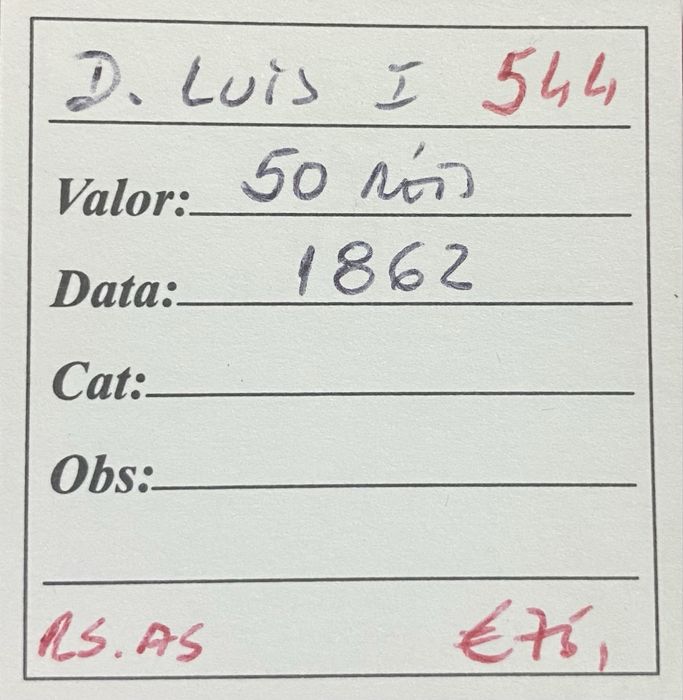 D. Luis I 544
Valor: 50 Réis
Data: 1862
Cat:
Obs:
RS. AS €75,